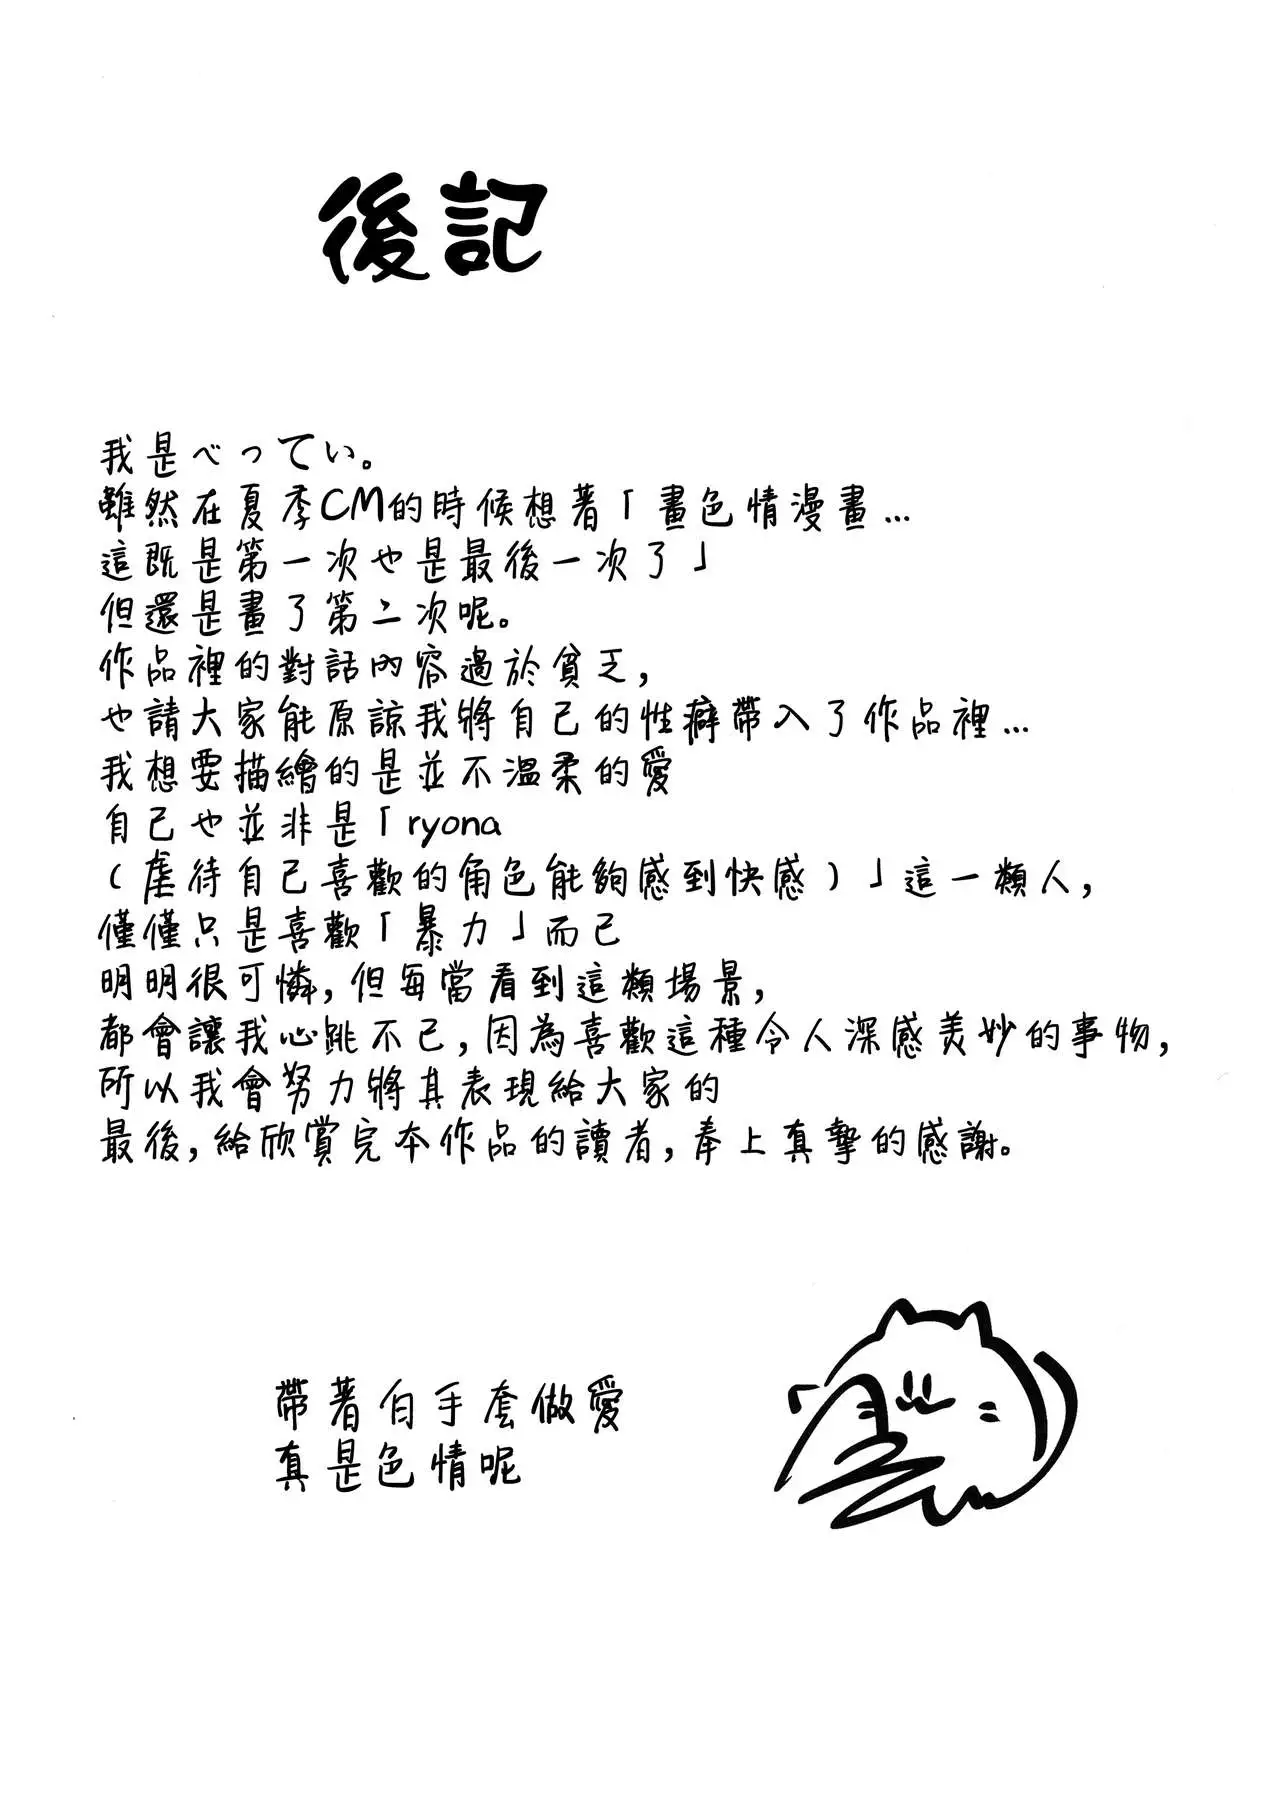 後記
我是べってい。
雖然在夏季CM的時候想著「畫色情漫畫...
這既是第一次也是最後一次了」
但還是畫了第二次呢。
作品裡的對話內容過於貧乏,
也請大家能原諒我將自己的性癖帶入了作品裡...
我想要描繪的是並不溫柔的愛
自己也並非是「ryona
(虐待自己喜歡的角色能夠感到快感)」這一類人,
僅僅只是喜歡「暴力」而已
明明很可憐,但每當看到這類場景,
都會讓我心跳不已,因為喜歡這種令人深感美妙的事物,
所以我會努力將其表現給大家的
最後,給欣賞完本作品的讀者,奉上真摯的感謝。
帶著白手套做愛
真是色情呢